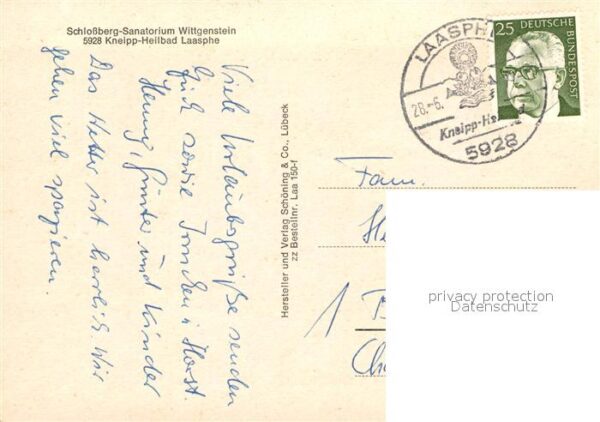 Schloßberg-Sanatorium Wittgenstein
5928 Kneipp-Heilbad Laasphe
Viele Urlaubsgrüße senden
Euch sowie
Horst.
Henny, Günter und Kinder
Das Wetter ist herrlich. Wir
gehen viel spazieren.
Hersteller und Verlag Schöning & Co., Lübeck
zz Bestellnr. Laa 150-f
LAASPH
28.-6.
Kneipp-He
5928
25 DEUTSCHE
BUNDESPOST
Fam.
1
privacy protection
Datenschutz